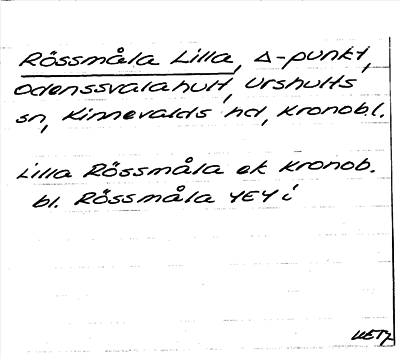 Rössmåla Lilla, Δ-punkt,
Odenssvalahult, Urshults
sn, Kinnevalds hd, Kronobl.
Lilla Rössmåla ek Kronob.
bl. Rössmåla YEY i